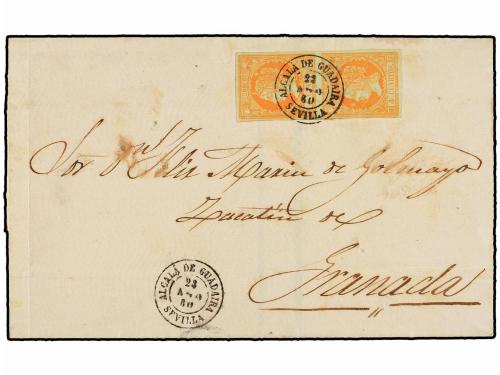 ALCALÁ DE GUADAIRA
23
AGO
60
SEVILLA
Sor Dn Felix Maria de Golmayo
Zacatin de
Granada
ALCALÁ DE GUADAIRA
23
AGO
60
SEVILLA